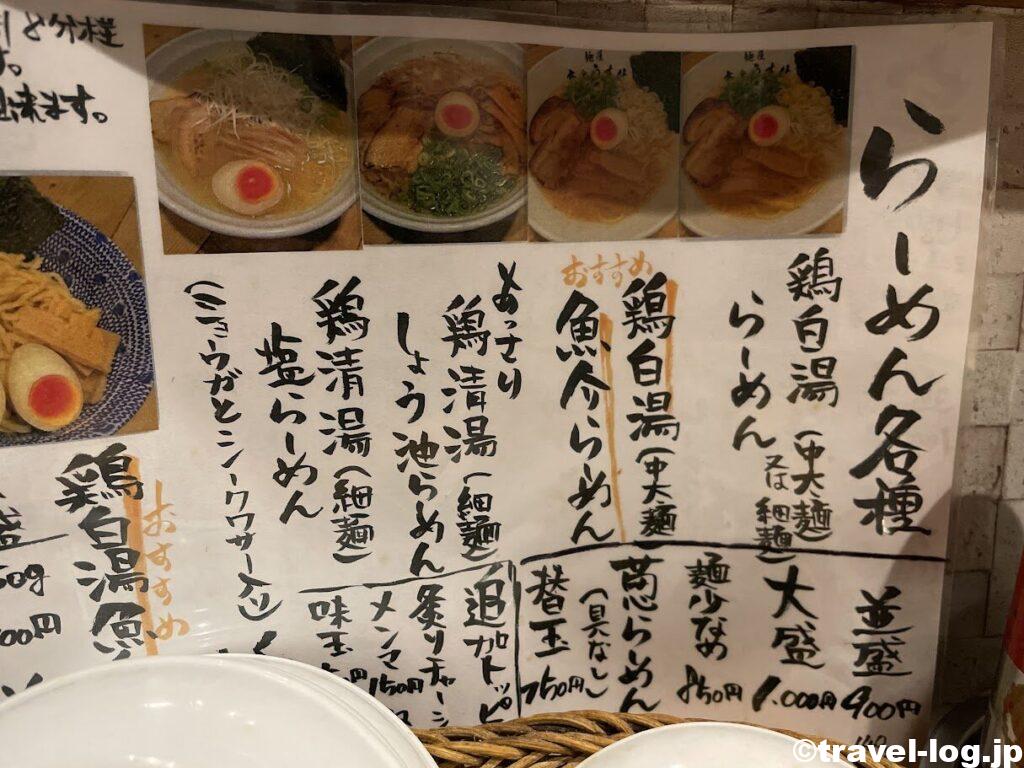 らーめん各種
鶏白湯(中太麺)
又は細麺
らーめん
おすすめ
鶏白湯(中太麺)
魚介らーめん
あっさり
鶏清湯(細麺)
しょう油らーめん
鶏清湯(細麺)
塩らーめん
(ミョウガとシークワサー入り)
並盛 900円
大盛 1.000円
麺少なめ 850円
替玉 150円
(具なし)
追加トッピ
炙りチャーシ
メンマ 150円
味玉
と分様
す。
出来ます。
おすすめ
鶏白湯魚
盛
50g
00円
麺屋
©travel-log.jp